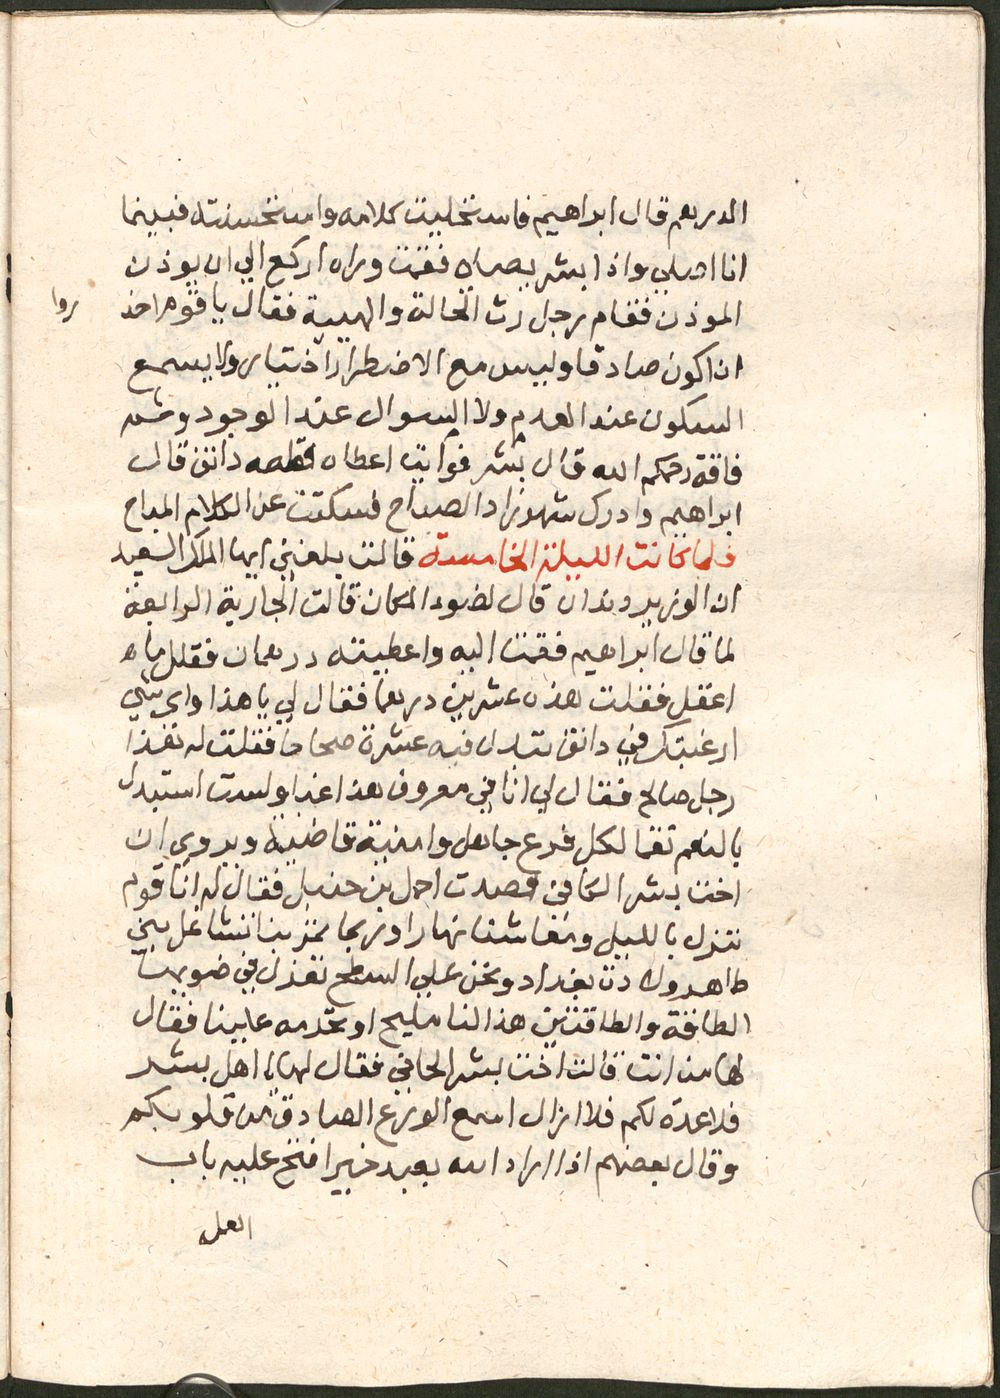 الدرهم قال ابراهيم فاستحليت كلامه واستحسنته فبينما
انا اصلي واذا ببشر يصلي فقمت وراه اركع الي ان يوذن
الموذن فقام رجل رث الحالة والهيية فقال يا قوم احذ
روا
ان اكون صادقا وليس مع الاضطرار اختيار ولا يسمع
السكون عند العدم ولا السوال عند الوجود وثم
فاقة رحمكم الله قال بشر فرايت اعطاه قطعه دانق قال
ابراهيم وادرك شهرزاد الصباح فسكتت عن الكلام المباح
فلما كانت الليلة الخامسة قالت بلغني ايها الملك السعيد
ان الوزير دندان قال لضوء المكان قالت الجارية الرابعة
لما قال ابراهيم فقمت اليه واعطيته درهمان فقلل ما
اعقل فقلت هذه عشرين درهما فقال لي يا هذا واي شي
ارغبتك في دانق تبدل فيه عشرة صحاحا فقلت له هذا
رجل صالح فقال لي انا في معروف هذا اغدا ولست استبدل
بالنعم نقما لكل فرع جاهل وامنية قاضية ويروي ان
اخت بشر الحافي قصدت احمل بن حنبل فقال له انا قوم
ننزل بالليل ومعاشنا نهارا وربما تمر بنا مشاعل بني
طاهر ولاة بغداد ونحن علي السطح نغزل في ضويها
الطاقة والطاقتين هذا لنا مليح او تحرمه علينا فقال
لها من انت قالت اخت بشر الحافي فقال لها يا اهل بشر
فلا عدة لكم فلا ازال اسمع الورع الصادق من قلوبكم
وقال بعضهم اذا اراد الله بعبد خيرا فتح عليه باب
العمل